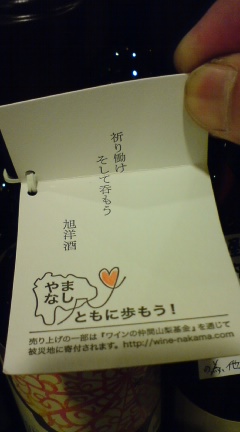 祈り働け
そして呑もう
旭洋酒
やま
なし
ともに歩もう！
売り上げの一部は『ワインの仲間山梨基金』を通じて
被災地に寄付されます。http://wine-nakama.com